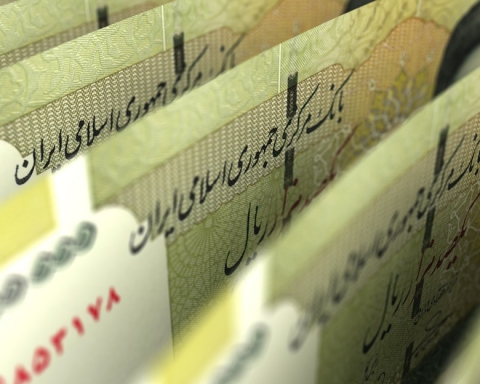 بانک مرکزی جمهوری اسلامی ایران
بانک مرکزی جمهوری اسلامی ایران
ریال
بانک مرکزی جمهوری اسلامی ایران
یکصد هزار ریال
۸۵۳۱۷۸